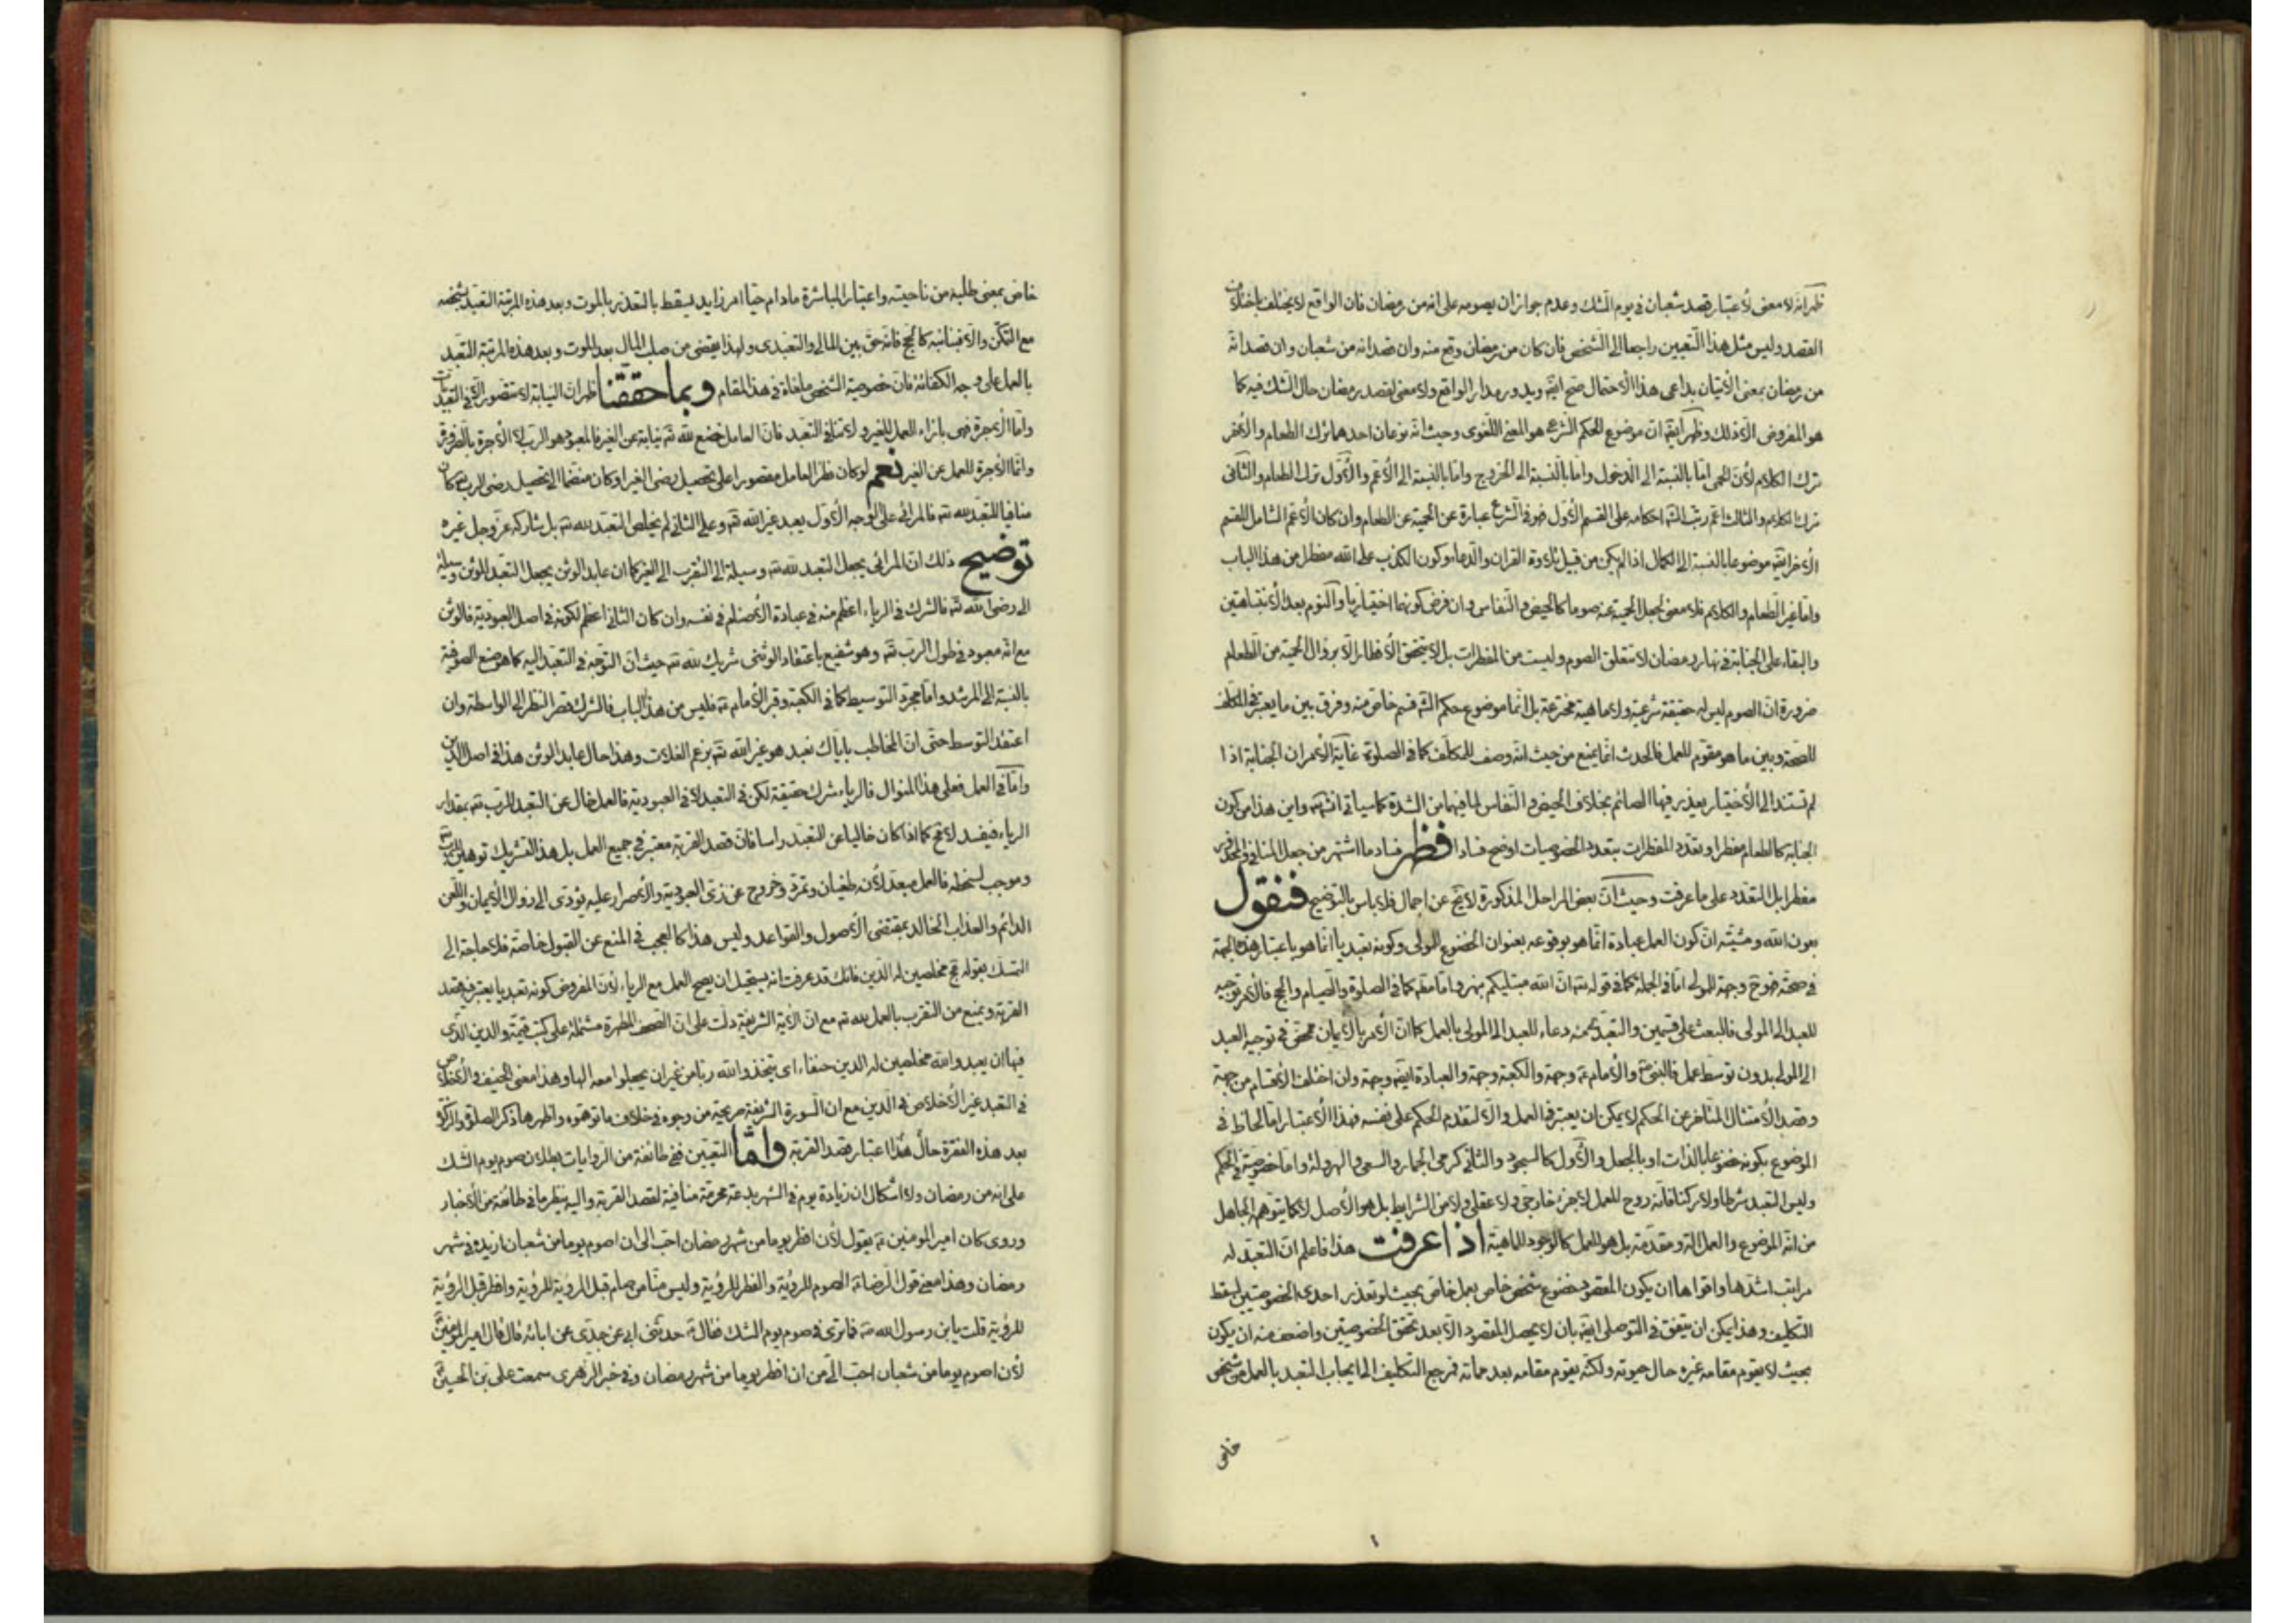 ظهر انه لا معنى لاعتبار قصد شعبان في يوم الشك وعدم جواز ان يصومه على انه من رمضان فان الواقع لا يختلف باختلاف
القصد وليس مثل هذا التعيين راجعا الى الشخص فان كان من رمضان وقع منه وان قصد انه من شعبان وان قصد انه
من رمضان بمعنى الاتيان بداعى هذا الاحتمال صح ايضا ويدور مدار الواقع ولا معنى لقصد رمضان حال الشك فيه كما
هو المفروض الا ذلك وظهر ايضا ان موضوع الحكم الشرعي هو المعنى اللغوى وحيث انه نوعان احدهما ترك الطعام والاخر
ترك الكلام لان الحمى اما بالنسبة الى الدخول واما بالنسبة الى الخروج واما بالنسبة الى الاعم والاول ترك الطعام والثانى
ترك الكلام والثالث اعم رتب الشارع احكامه على القسم الاول فهو في الشرع عبارة عن الحمية عن الطعام وان كان الاعم الشامل للقسم
الاخر ايضا موضوعا بالنسبة الى الكمال اذا لم يكن من قبيل تلاوة القران والدعاء وكون الكذب على الله مفطرا من هذا الباب
واما غير الطعام والكلام فلا معنى لجعل الحمية عنه صوما كالحيض والنفاس وان فرض كونهما اختياريا والنوم بعد الانتباهتين
والبقاء على الجنابة في نهار رمضان لا يتعلق الصوم وليست من المفطرات بل لا يتحقق الافطار الا بزوال الحمية من الطعام
ضرورة ان الصوم ليس له حقيقة شرعية ولا ماهية مخترعة بل انما موضوع حكم الشارع قسم خاص منه وفرق بين ما يعتبر في المكلف
للصحة وبين ما هو مقوم للعمل فالحدث انما يمنع من حيث انه وصف للمكلف كما في الصلوة غاية الامر ان الجنابة اذا
لم تستند الى الاختيار يعذر فيها الصائم بخلاف الحيض والنفاس لما فيهما من الشدة كما سياتى انشاء الله واين هذا من كون
الجنابة كالطعام مفطرا وتعدد المفطرات بتعدد الخصوصيات اوضح فسادا فظهر فساد ما اشتهر من جعل المنافي والحدث
مفطرا بل التعدد على ما عرفت وحيث ان بعض المراحل المذكورة لا يخ عن اجمال فلا باس بالتوضيح فنقول
بعون الله ومشيته ان كون العمل عبادة انما هو بوقوعه بعنوان الخضوع للمولى وكونه تعبديا انما هو باعتبار هذه الجهة
في صحته فهو ح وجهة للمولى اما في الجملة كما في قوله تعالى ان الله مبتليكم بنهر واما مطلقا كما في الصلوة والصيام والحج فالامر توجيه
للعبد الى المولى فالبعث على قسمين والتعبد يحمنه دعاء للعبد الى المولى بالعمل كما ان الامر بالايمان محض في توجيه العبد
الى المولى بدون توسط عمل فالنبى ص والامام ع وجهة والكعبة وجهة والعبادة ايضا وجهة وان اختلف الاقسام من جهة
وقصد الامتثال المتاخر عن الحكم لا يمكن ان يعتبر في العمل والا لتقدم الحكم على نفسه فهذا الاعتبار اما لحاظ في
الموضوع بكونه خضوعا بالذات او بالجعل والاول كالسجود والثانى كرمى الجمار والسعى والهرولة واما خصوصية في الحكم
وليس التعبد شرطا ولا ركنا فانه روح للعمل لا جزء خارجى ولا عقلى ولا من الشرايط بل هو الاصل لا كما يتوهم الجاهل
من انه الموضوع والعمل الة ومقدمة بل هو للعمل كالوجود للماهية اذا عرفت هذا فاعلم ان التعبد له
مراتب اشدها واقواها ان يكون المقصود خضوع شخص خاص بعمل خاص بحيث لو تعذر احدى الخصوصيتين لسقط
التكليف وهذا يمكن ان يتفق في التوصلى ايضا بان لا يحصل المقصود الا بعد تحقق الخصوصيتين واضعف منه ان يكون
بحيث لا يقوم مقامه غيره حال حيوته ولكنه يقوم مقامه بعد مماته فمرجع التكليف الى ايجاب التعبد بالعمل من شخص
خاص
خاص بمعنى طلبه من ناحيته واعتبار المباشرة ما دام حيا امر زايد يسقط بالتعذر بالموت وبعد هذه المرتبة التعبد بشخصه
مع التمكن والا فبنائبه كالحج فانه حق بين المالى والتعبدى ولهذا يقضى من صلب المال بعد الموت وبعد هذه المرتبة التعبد
بالعمل على وجه الكفائة فان خصوصية الشخص ملغاة في هذا المقام وبما حققنا ظهر ان النيابة لا تتصور الا في التعبديات
واما الاجرة فهى بازاء العمل للغير ولا تنافى التعبد فان العامل خضع لله تعالى نيابة عن الغير فالمعبود هو الرب لا الاجرة بالضرورة
وانما الاجرة للعمل عن الغير نعم لو كان نظر العامل مقصورا على تحصيل رضى الغير او كان منضما الى تحصيل رضى الرب تعالى كان
منافيا للتعبد لله تعالى فالمرائى على الوجه الاول يعبد غير الله تعالى وعلى الثانى لم يخلص التعبد لله تعالى بل شاركه عز وجل غيره
توضيح ذلك ان المرائى يجعل التعبد لله تعالى وسيلة الى التقرب الى الغير كما ان عابد الوثن يجعل التعبد للوثن وسيلة
الى رضى الله تعالى فالشرك في الرياء اعظم منه في عبادة الاصنام في نفسه وان كان الثانى اعظم لكونه في اصل العبودية فالوثن
مع انه معبود في طول الرب تعالى وهو شفيع باعتقاد الوثنى شريك لله تعالى حيث ان التوجه في التعبد اليه كما هو صنع الصوفية
بالنسبة الى المرشد واما مجرد التوسيط كما في الكعبة وقبر الامام ع فليس من هذا الباب فالشرك قصر النظر الى الواسطة وان
اعتقد التوسط حتى ان المخاطب باياك نعبد هو غير الله تعالى بزعم الغلات وهذا حال عابد الوثن هذا في اصل الدين
واما في العمل فعلى هذا المنوال فالرياء شرك حقيقة لكن في التعبد لا في العبودية فالعمل خال عن التعبد للرب تعالى بمقدار
الرياء فيفسد لا مح كما اذا كان خاليا عن التعبد راسا فان قصد القربة معتبر في جميع العمل بل هذا التشريك توهين للرب تعالى
وموجب لسخطه فالعمل مبعد لانه طغيان وتمرد وخروج عن زى العبودية والاصرار عليه يؤدى الى زوال الايمان واللعن
الدائم والعذاب الخالد بمقتضى الاصول والقواعد وليس هذا كالعجب في المنع عن القبول خاصة فلا حاجة الى
التمسك بقوله تعالى مخلصين له الدين فانك قد عرفت انه يستحيل ان يصح العمل مع الرياء لان المفروض كونه تعبديا يعتبر فيه قصد
القربة ويمنع من التقرب بالعمل لله تعالى مع ان الاية الشريفة دلت على ان الصحف المطهرة مشتملة على كتب قيمة والدين الذى
فيها ان يعبدوا الله مخلصين له الدين حنفاء اى يتخذوا الله ربا من غير ان يجعلوا معه الها وهذا معنى الحنيف والاخلاص
في التعبد غير الاخلاص في الدين مع ان السورة الشريفة صريحة من وجوه في خلاف ما توهموه واظهرها ذكر الصلوة والزكوة
بعد هذه الفقرة حال هذا اعتبار قصد القربة واما التعيين ففى طائفة من الروايات بطلان صوم يوم الشك
على انه من رمضان ولا اشكال ان زيادة يوم في الشهر بدعة محرمة منافية لقصد القربة واليه ينظر ما في طائفة من الاخبار
وروى كان امير المومنين ع يقول لان افطر يوما من شهر رمضان احب الى ان اصوم يوما من شعبان ازيده في شهر
رمضان وهذا معنى قول الرضا ع الصوم للرؤية والفطر للرؤية وليس منا من صام قبل الرؤية للرؤية وافطر قبل الرؤية
للرؤية قلت يابن رسول الله ص فما ترى في صوم يوم الشك فقال ع حدثنى ابى عن جدى عن ابائه قال قال امير المومنين ع
لان اصوم يوما من شعبان احب الى من ان افطر يوما من شهر رمضان وفي خبر الزهرى سمعت على بن الحسين ع